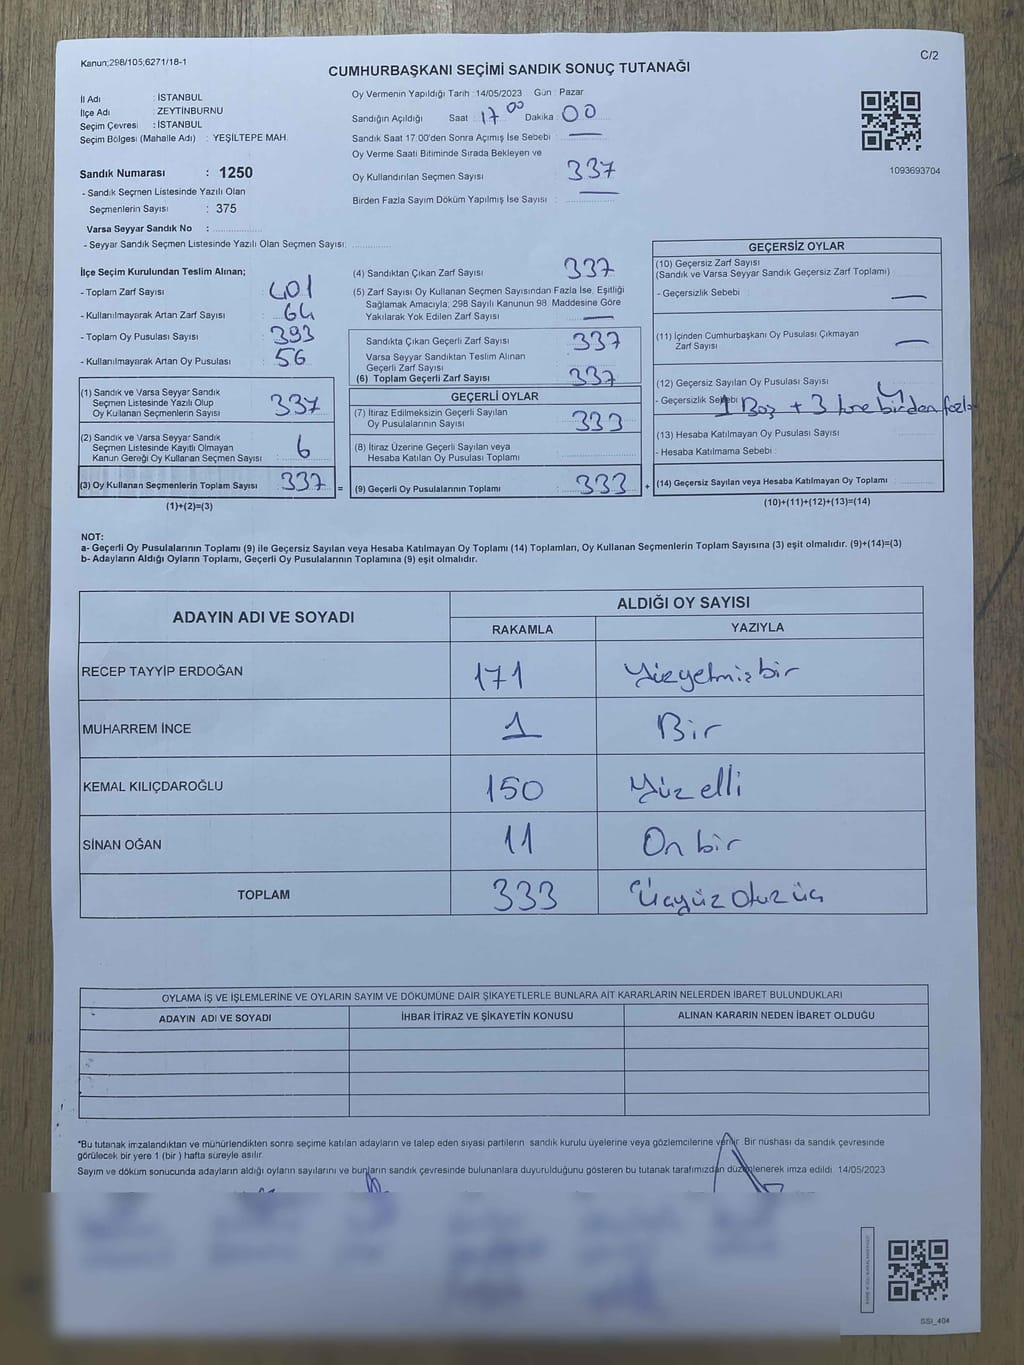 Kanun;298/105;6271/18-1
C/2
CUMHURBAŞKANI SEÇİMİ SANDIK SONUÇ TUTANAĞI
İl Adı : İSTANBUL
İlçe Adı : ZEYTİNBURNU
Seçim Çevresi : İSTANBUL
Seçim Bölgesi (Mahalle Adı) : YEŞİLTEPE MAH.
Sandık Numarası : 1250
- Sandık Seçmen Listesinde Yazılı Olan
Seçmenlerin Sayısı : 375
Varsa Seyyar Sandık No :
- Seyyar Sandık Seçmen Listesinde Yazılı Olan Seçmen Sayısı:
Oy Vermenin Yapıldığı Tarih : 14/05/2023 Gün : Pazar
Sandığın Açıldığı Saat : 17 00 Dakika : 00
Sandık Saat 17:00'den Sonra Açımış İse Sebebi : —
Oy Verme Saati Bitiminde Sırada Bekleyen ve
Oy Kullandırılan Seçmen Sayısı : 337
Birden Fazla Sayım Döküm Yapılmış İse Sayısı : —
1093693704
İlçe Seçim Kurulundan Teslim Alınan;
- Toplam Zarf Sayısı : 401
- Kullanılmayarak Artan Zarf Sayısı : 64
- Toplam Oy Pusulası Sayısı : 393
- Kullanılmayarak Artan Oy Pusulası : 56
(1) Sandık ve Varsa Seyyar Sandık
Seçmen Listesinde Yazılı Olup
Oy Kullanan Seçmenlerin Sayısı : 337
(2) Sandık ve Varsa Seyyar Sandık
Seçmen Listesinde Kayıtlı Olmayan
Kanun Gereği Oy Kullanan Seçmen Sayısı : 6
(3) Oy Kullanan Seçmenlerin Toplam Sayısı : 337 =
(1)+(2)=(3)
(4) Sandıktan Çıkan Zarf Sayısı : 337
(5) Zarf Sayısı Oy Kullanan Seçmen Sayısından Fazla İse, Eşitliği
Sağlamak Amacıyla, 298 Sayılı Kanunun 98. Maddesine Göre
Yakılarak Yok Edilen Zarf Sayısı : —
Sandıkta Çıkan Geçerli Zarf Sayısı : 337
Varsa Seyyar Sandıktan Teslim Alınan
Geçerli Zarf Sayısı :
(6) Toplam Geçerli Zarf Sayısı : 337
GEÇERLİ OYLAR
(7) İtiraz Edilmeksizin Geçerli Sayılan
Oy Pusulalarının Sayısı : 333
(8) İtiraz Üzerine Geçerli Sayılan veya
Hesaba Katılan Oy Pusulası Toplamı :
(9) Geçerli Oy Pusulalarının Toplamı : 333 +
GEÇERSİZ OYLAR
(10) Geçersiz Zarf Sayısı
(Sandık ve Varsa Seyyar Sandık Geçersiz Zarf Toplamı)
- Geçersizlik Sebebi : —
(11) İçinden Cumhurbaşkanı Oy Pusulası Çıkmayan
Zarf Sayısı : —
(12) Geçersiz Sayılan Oy Pusulası Sayısı : 4
- Geçersizlik Sebebi 1 Boş + 3 birden fazla
(13) Hesaba Katılmayan Oy Pusulası Sayısı :
- Hesaba Katılmama Sebebi :
(14) Geçersiz Sayılan veya Hesaba Katılmayan Oy Toplamı :
(10)+(11)+(12)+(13)=(14)
NOT:
a- Geçerli Oy Pusulalarının Toplamı (9) ile Geçersiz Sayılan veya Hesaba Katılmayan Oy Toplamı (14) Toplamları, Oy Kullanan Seçmenlerin Toplam Sayısına (3) eşit olmalıdır. (9)+(14)=(3)
b- Adayların Aldığı Oyların Toplamı, Geçerli Oy Pusulalarının Toplamına (9) eşit olmalıdır.
ADAYIN ADI VE SOYADI ALDIĞI OY SAYISI
RAKAMLA YAZIYLA
RECEP TAYYİP ERDOĞAN 171 Yüzyetmişbir
MUHARREM İNCE 1 Bir
KEMAL KILIÇDAROĞLU 150 Yüz elli
SİNAN OĞAN 11 On bir
TOPLAM 333 Üçyüz Otuz üç
OYLAMA İŞ VE İŞLEMLERİNE VE OYLARIN SAYIM VE DÖKÜMÜNE DAİR ŞİKAYETLERLE BUNLARA AİT KARARLARIN NELERDEN İBARET BULUNDUKLARI
ADAYIN ADI VE SOYADI İHBAR İTİRAZ VE ŞİKAYETİN KONUSU ALINAN KARARIN NEDEN İBARET OLDUĞU
*Bu tutanak imzalandıktan ve mühürlendikten sonra seçime katılan adayların ve talep eden siyasi partilerin sandık kurulu üyelerine veya gözlemcilerine verilir. Bir nüshası da sandık çevresinde
görülecek bir yere 1 (bir ) hafta süreyle asılır.
Sayım ve döküm sonucunda adayların aldığı oyların sayılarını ve bunların sandık çevresinde bulunanlara duyurulduğunu gösteren bu tutanak tarafımızdan düzenlenerek imza edildi. 14/05/2023
SSI_404